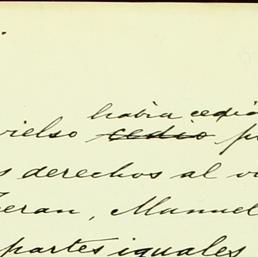 había cedido
vielso cedio
derechos al
Teran, Manuel
partes iguales